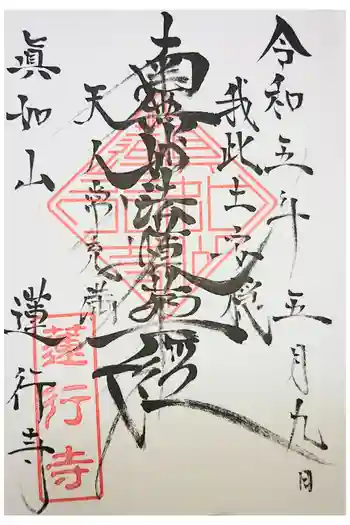 令和五年五月九日
我此土安穏
南無妙法蓮華経
天人常充満
眞如山
蓮行寺
蓮行寺